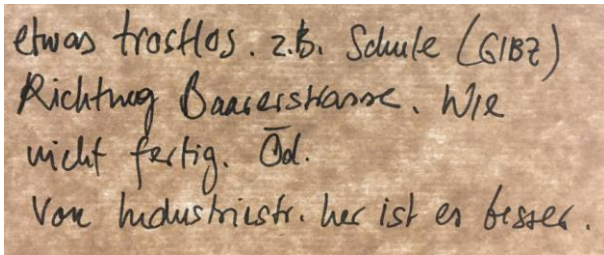 etwas trostlos. z.B. Schule (GIBZ)
Richtung Baarerstrasse. Wie
nicht fertig. Öd.
Von Industriestr. her ist es besser.